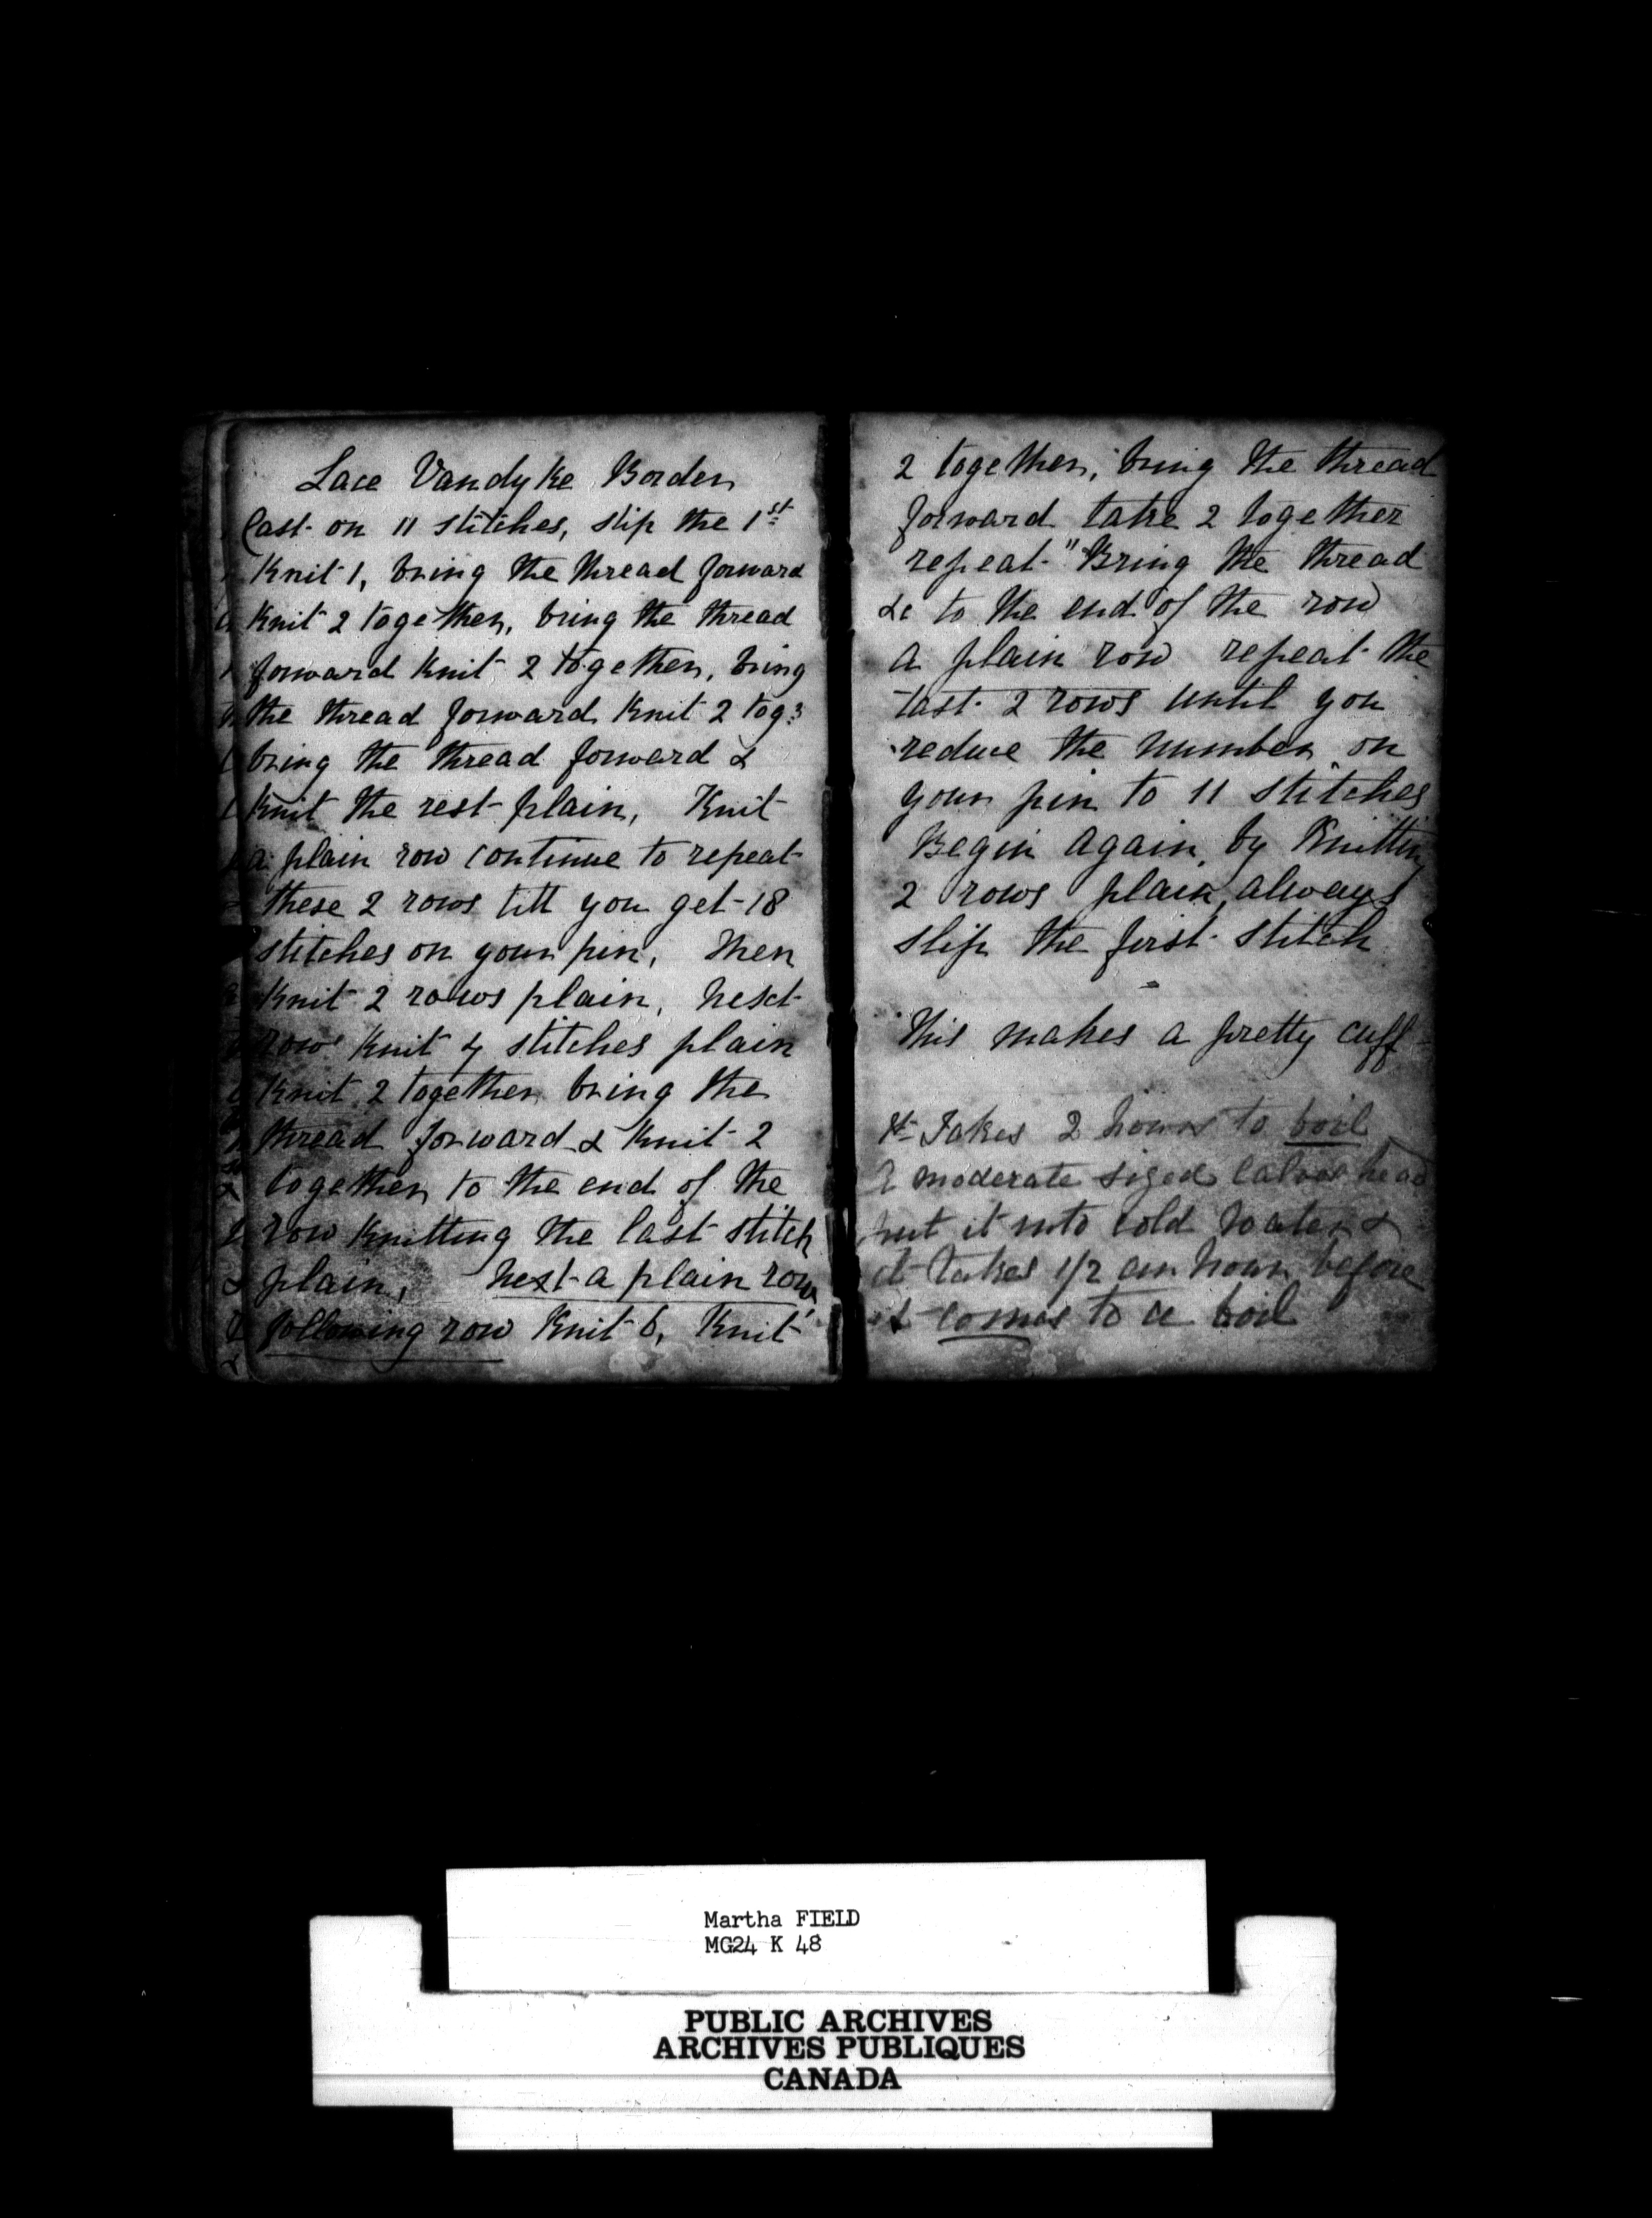 Lace Vandyke Border
Cast on 11 stitches, slip the 1st
Knit 1, bring the thread forward
Knit 2 together, bring the thread
forward Knit 2 together, bring
the thread forward Knit 2 tog:
bring the thread forward &
Knit the rest plain, Knit
a plain row continue to repeat
these 2 rows till you get 18
stitches on your pin, Then
Knit 2 rows plain, next
row Knit 4 stitches plain
Knit 2 together bring the
thread forward & Knit 2
together to the end of the
row Knitting the last stitch
plain, next a plain row
following row Knit 6, Knit
2 together, bring the thread
forward take 2 together
repeat "Bring the thread
&c to the end of the row
a plain row repeat the
last 2 rows until you
reduce the number on
your pin to 11 stitches
Begin again, by Knitting
2 rows plain, always
slip the first stitch
This makes a pretty cuff
It Takes 2 hours to boil
a moderate sized calves head
put it into cold water &
it takes 1/2 an hour before
it comes to a boil
Martha FIELD
MG24 K 48
PUBLIC ARCHIVES
ARCHIVES PUBLIQUES
CANADA